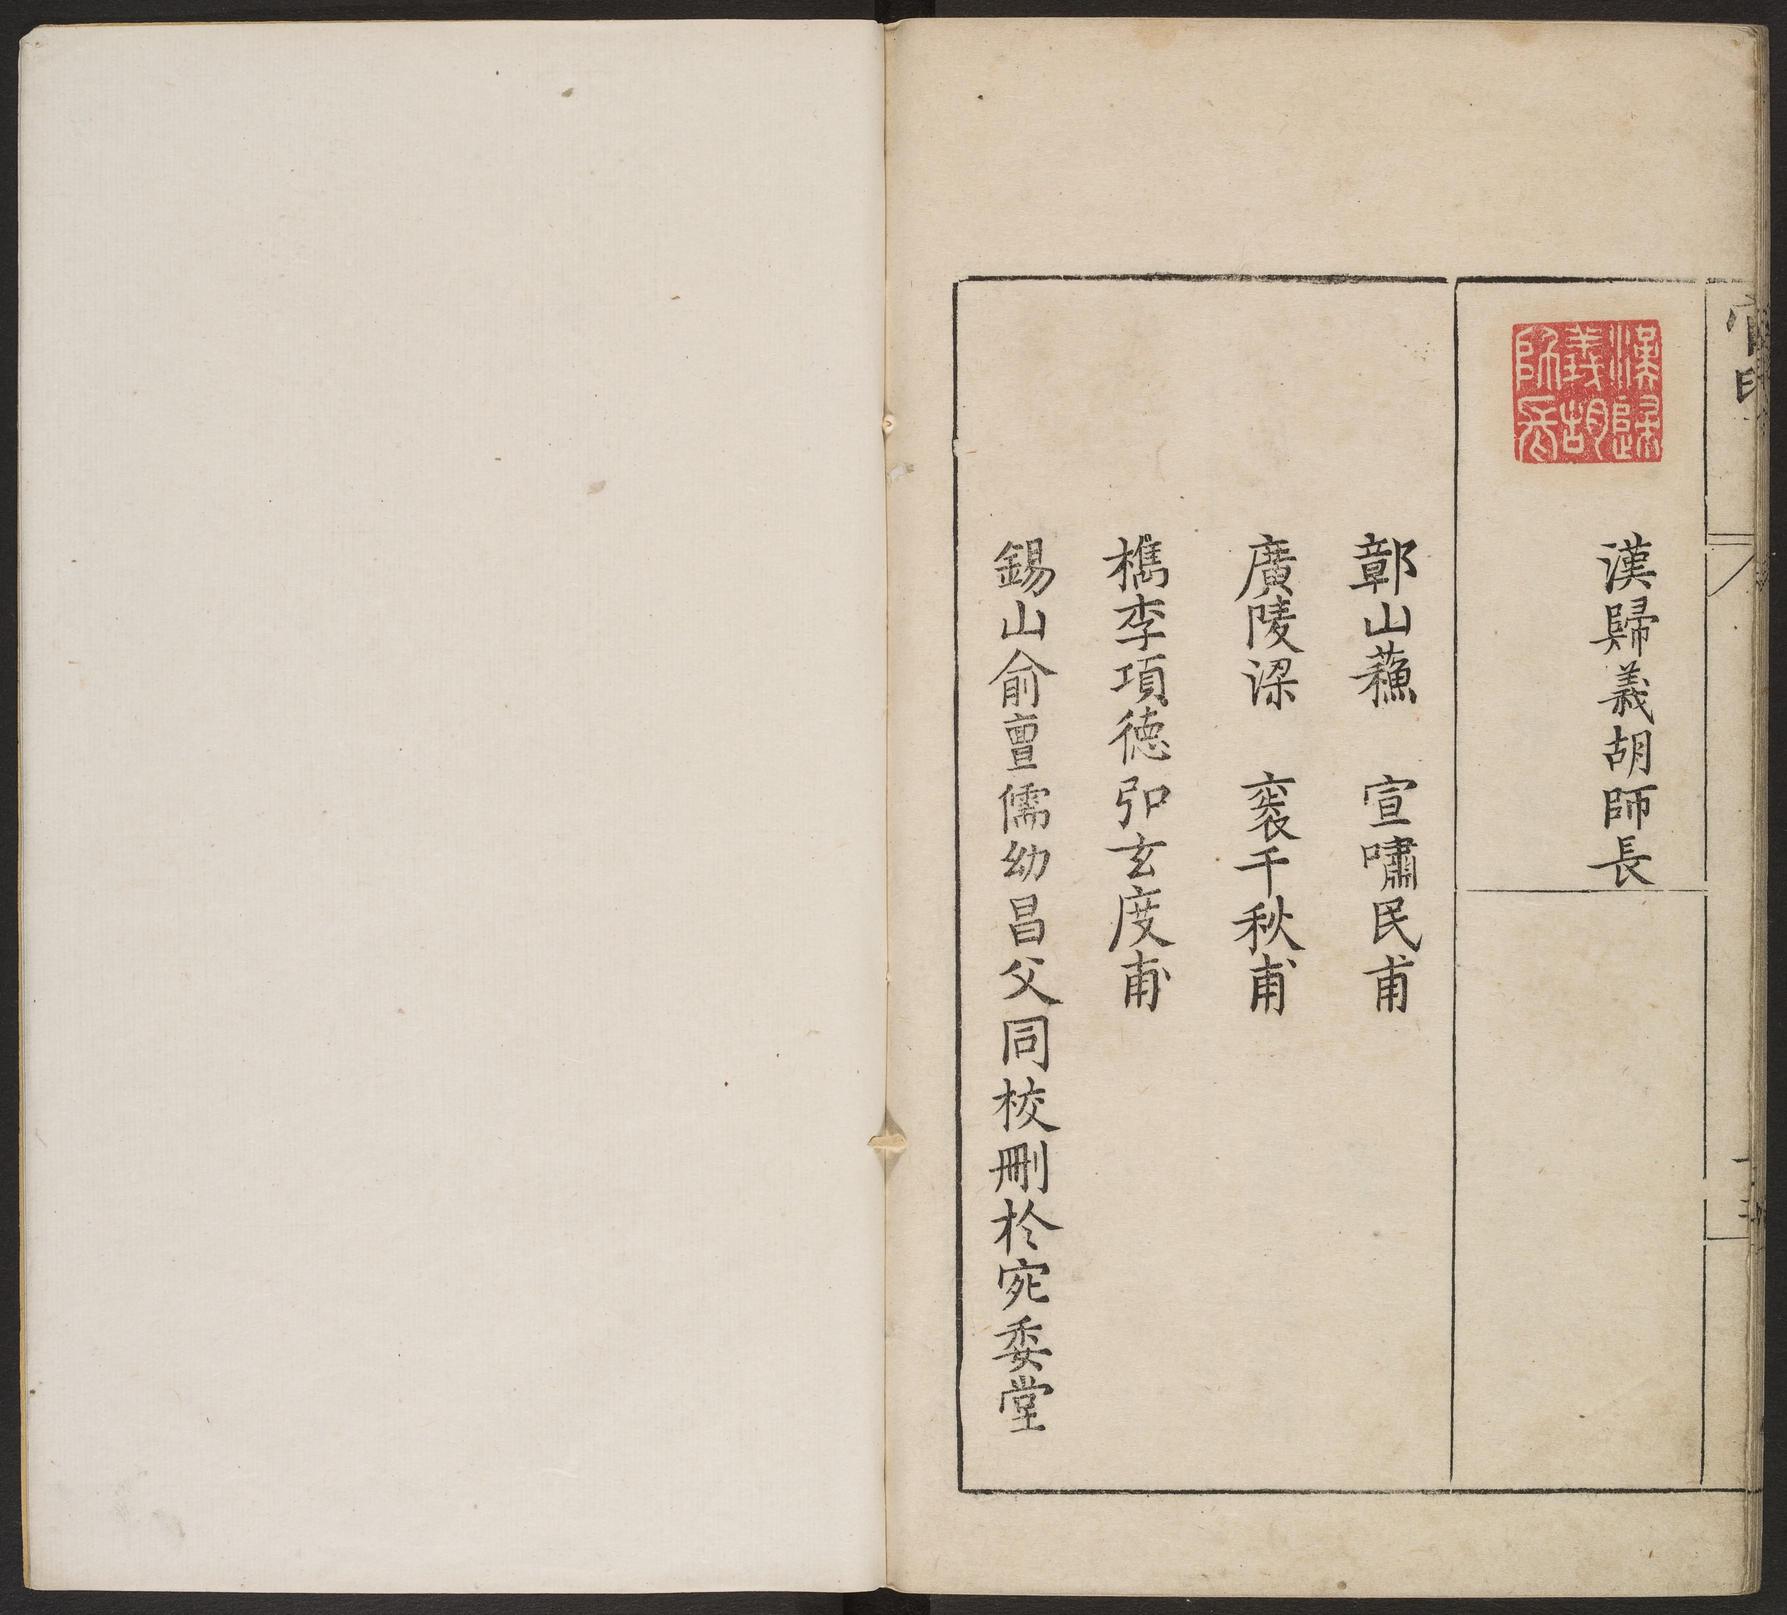 官印
漢歸義胡師長
漢歸義胡師長
鄣山蘓　宣嘯民甫
廣陵梁　袠千秋甫
檇李項德弘玄度甫
錫山俞亶儒幼昌父同校刪於宛委堂